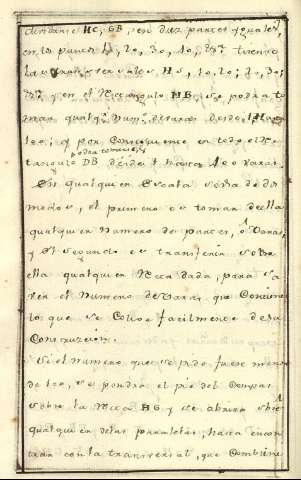 HC, GB, en diez partes yguales,
en los puntos 4, 20, 30, 40, &a. tirense
las
&a. y en el Rectangulo HB, se podra to
mar qualqr. Numo. de varas desde 1 hasta
100; y por Consiguiente en todo el Rec
podra tomarse
tangulo DB desde 1 hasta 400 varas.
En qualquier Escala se ha de dos
modos, el primero es tomar de ella
qualquier Numero de partes, ô Varas,
y el segundo es transferir sobre
ella qualquier Recta dada, para sa
ver el Numero de Varas que Contiene
lo que se Colige facilmente de su
Construzion.
Si el Numero que se pide fuese menor
de 100, se pondrâ el pie del Compas
sobre la Recta HG y se abrira sobre
qualquier de las paralelas, hasta encon
trar con la transversal, que Combiene